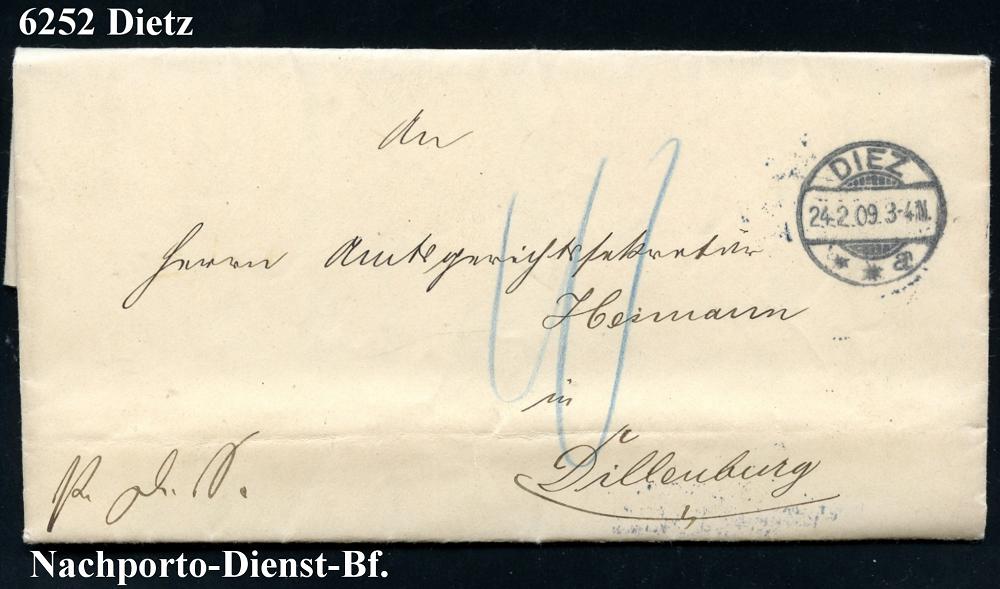 6252 Dietz
An
DIEZ
24.2.09.3-4N.
* * a
Herrn Amtsgerichtssekretär
Heimann
in
Dillenburg
Nachporto-Dienst-Bf.